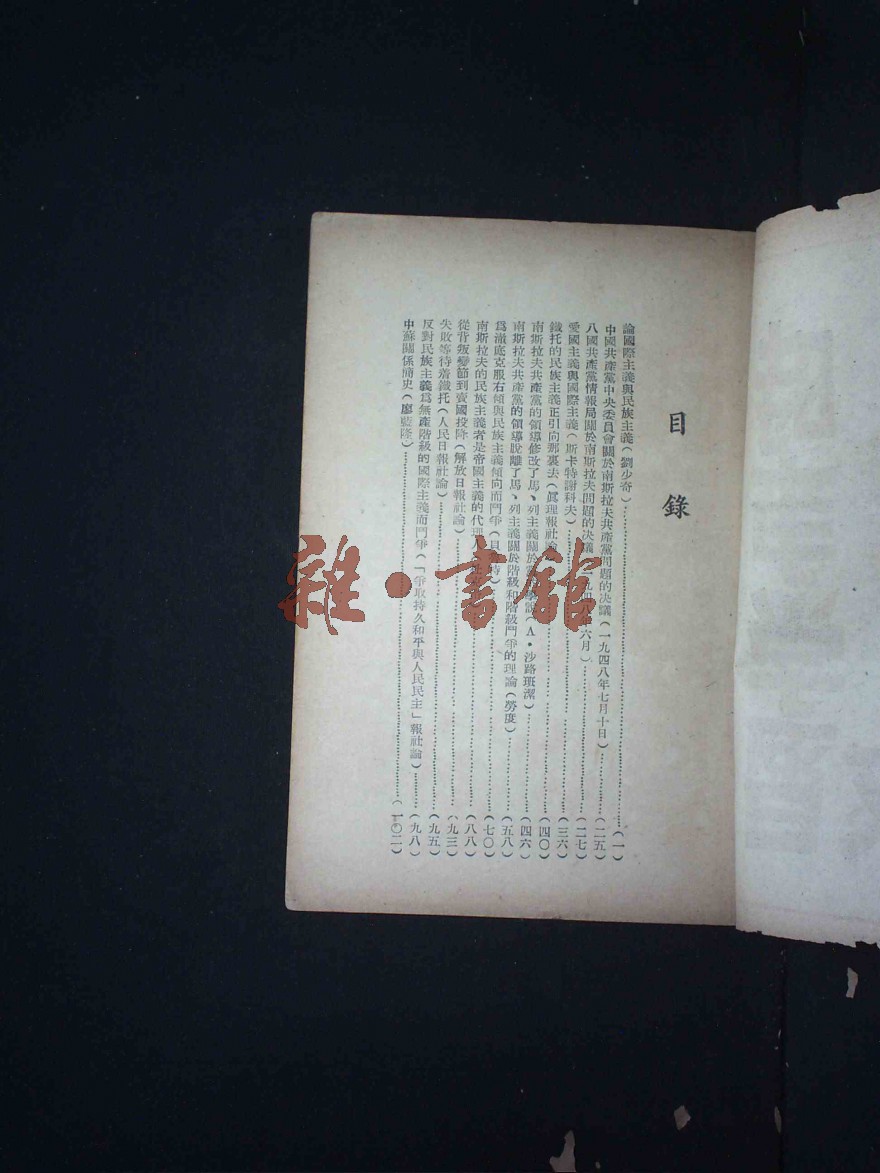 目錄
論國際主義與民族主義(劉少奇)……(一)
中國共產黨中央委員會關於南斯拉夫共產黨問題的决議(一九四八年七月十日)……(二五)
八國共產黨情報局關於南斯拉夫問題的决議(一九四八年六月)……(二七)
愛國主義與國際主義(斯卡特謝科夫)……(三六)
鐵托的民族主義正引向那裏去(眞理報社論)……(四〇)
南斯拉夫共產黨的領導修改了馬、列主義關於黨的學說(A·沙路斑潔)……(四六)
南斯拉夫共產黨的領導脫離了馬、列主義關於階級和階級鬥爭的理論(勞度)……(五八)
爲澈底克服右傾與民族主義傾向而鬥爭(貝魯特)……(七〇)
南斯拉夫的民族主義者是帝國主義的代理……(八八)
從背叛變節到賣國投降(解放日報社論)……(九三)
失敗等待着鐵托(人民日報社論)……(九五)
反對民族主義爲無產階級的國際主義而鬥爭(「爭取持久和平與人民民主」報社論)……(九八)
中蘇關係簡史(廖藍隆)……(一〇二)
雜·書館